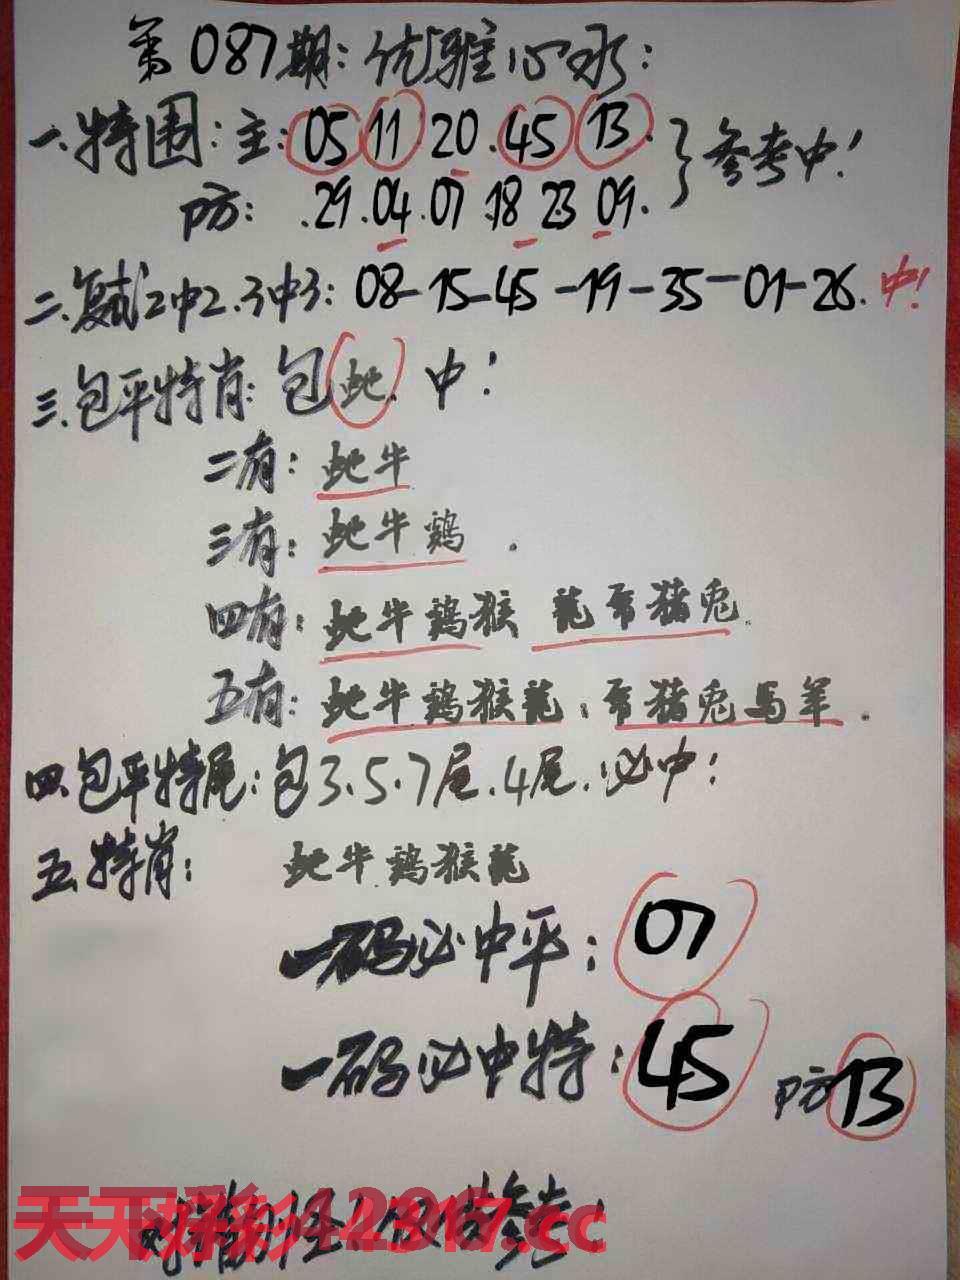 第087期:优雅心水:
一.特围:主:05 11 20.45 13.}参考中!
防:.29.04.07.18 23 09.
二.复试2中2.3中3:08-15-45-19-35-01-26.中!
三.包平特肖:包蛇.中!
二有:蛇牛
三有:蛇牛鸡.
四有:蛇牛鸡猴 龍 猪兎.
五有:蛇牛鸡猴龍: 猪兎馬羊.
四.包平特尾:包3.5.7尾.4尾.必中!
五.特肖: 蛇牛.鸡猴龍
一码必中平:07
一码必中特:45 防13
天天彩 .cc
参考!